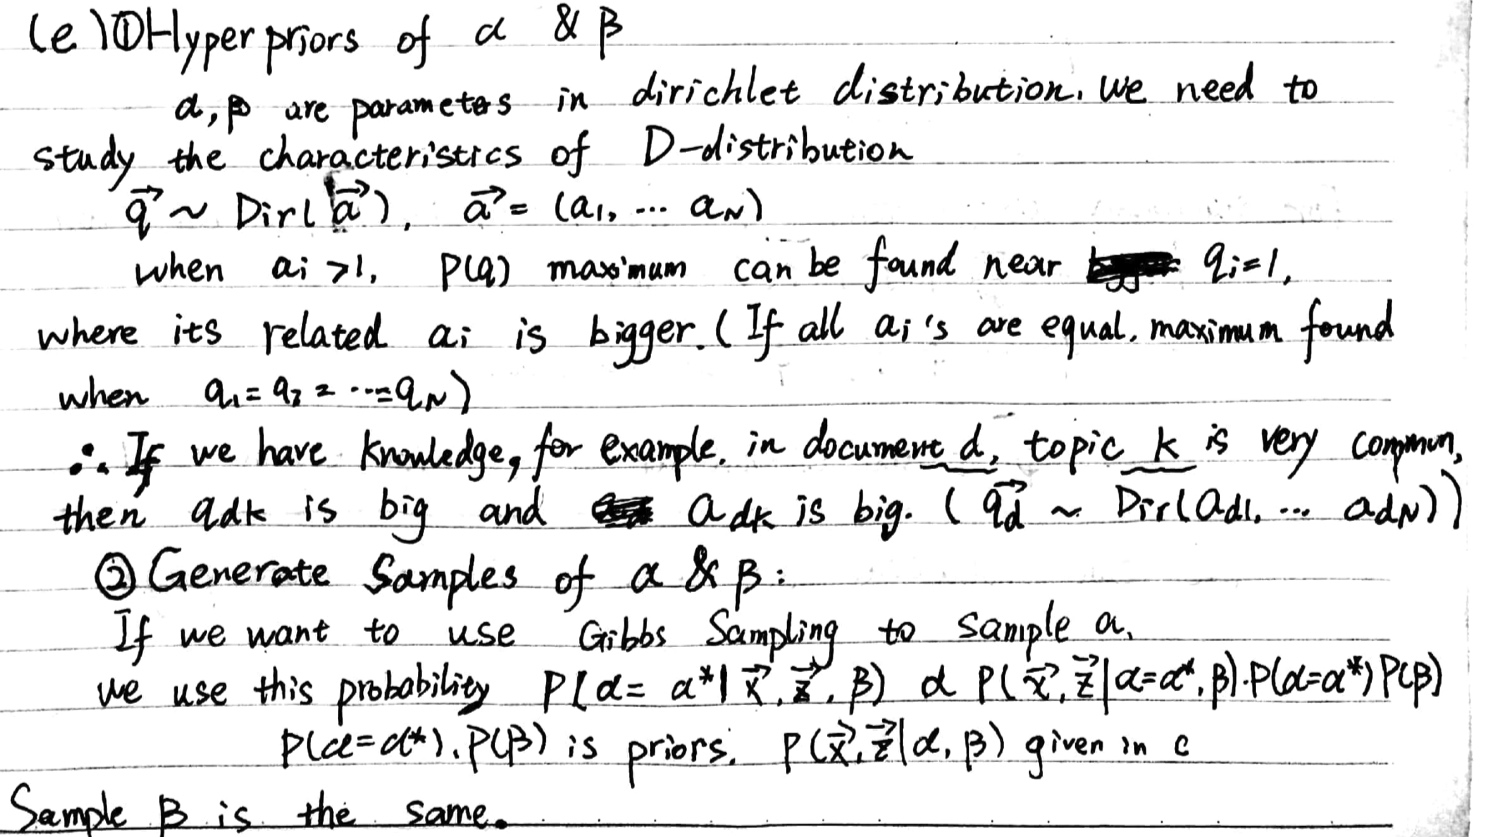 (e) ① Hyper priors of α & β
α, β are parameters in dirichlet distribution. We need to
study the characteristics of D-distribution
q⃗ ~ Dir(a⃗), a⃗ = (a₁, ... a_N)
when aᵢ >1, P(q) maximum can be found near qᵢ=1,
where its related aᵢ is bigger. (If all aᵢ's are equal, maximum found
when q₁ = q₂ = ... = q_N)
∴ If we have knowledge, for example, in document d, topic k is very common,
then q_dk is big and a_dk is big. (q⃗_d ~ Dir(a_d1, ... a_dN))
② Generate Samples of α & β:
If we want to use Gibbs Sampling to sample α,
we use this probability P(α = α*| x⃗, z⃗, β) ∝ P(x⃗, z⃗|α=α*, β)·P(α=α*) P(β)
P(α=α*), P(β) is priors. P(x⃗, z⃗|α, β) given in c
Sample β is the same.